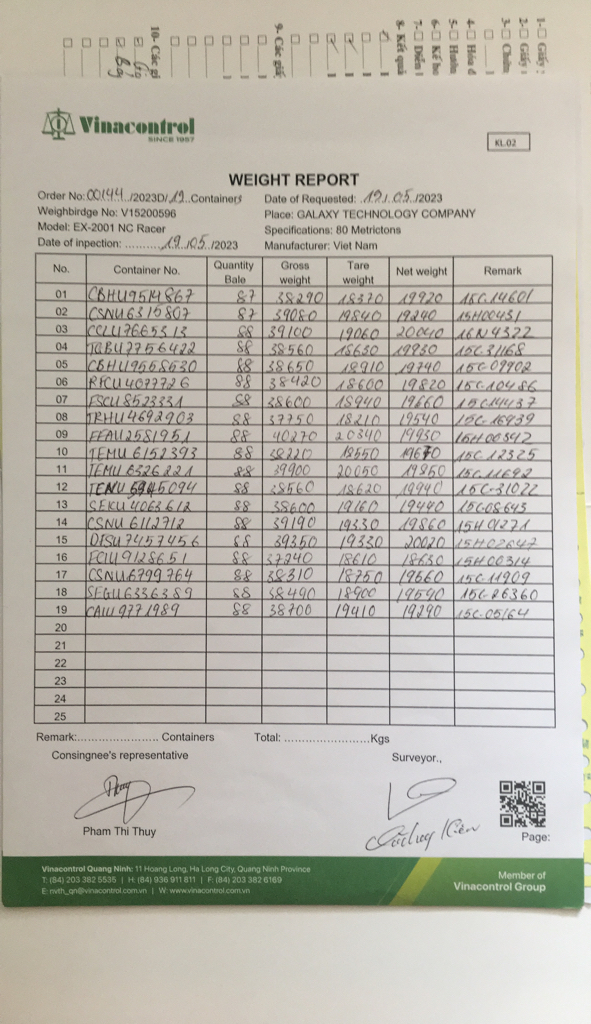 1- Giấy
2- Giấy
3- Chứn
4- Hóa đ
5- Hướn
6- Kế ho
7- Điểm
8- Kết quả
9- Các giấ
10- Các gi
Vinacontrol
SINCE 1957
KL.02
WEIGHT REPORT
Order No: 00144 /2023D/ 19 Containers Date of Requested: 19/05/2023
Weighbirdge No: V15200596 Place: GALAXY TECHNOLOGY COMPANY
Model: EX-2001 NC Racer Specifications: 80 Metrictons
Date of inpection: ...........19/05./2023 Manufacturer: Viet Nam
No. Container No. Quantity Bale Gross weight Tare weight Net weight Remark
01 CBHU9514867 87 38290 18370 19920 15C14601
02 CSNU6315807 87 39080 19840 19240 15H00431
03 CCLU7665313 88 39100 19060 20040 16N4322
04 TGBU7756422 88 38560 18630 19930 15C-31168
05 CBHU9558630 88 38650 18910 19740 15C-09902
06 RFCU4077726 88 38420 18600 19820 15C-10486
07 FSCU8523331 88 38600 18940 19660 15C14437
08 TRHU4692903 88 37750 18210 19540 15C-16939
09 FFAU2581951 88 40270 20340 19930 15H00342
10 TEMU6152393 88 38220 18550 19670 15C-12325
11 TEMU8326221 88 39900 20050 19850 15C-11692
12 TENU5945094 88 38560 18620 19940 15C-31022
13 SEKU4063612 88 38600 19160 19440 15C-08643
14 CSNU6112712 88 39190 19330 19860 15H01271
15 DISU7457456 88 39350 19330 20020 15H02647
16 FCIU9128651 88 37240 18610 18630 15H00314
17 CSNU6799764 88 38310 18750 19560 15C-11909
18 SEGU6336389 88 38490 18900 19590 15C-26360
19 CAIU9771989 88 38700 19410 19290 15C-05164
20
21
22
23
24
25
Remark:........................ Containers Total: ........................Kgs
Consingnee's representative Surveyor.,
Pham Thi Thuy
Page:
Vinacontrol Quang Ninh: 11 Hoang Long, Ha Long City, Quang Ninh Province
T: (84) 203 382 5535 | H: (84) 936 911 811 | F: (84) 203 382 6169
E: nvth_qn@vinacontrol.com.vn | W: www.vinacontrol.com.vn
Member of
Vinacontrol Group